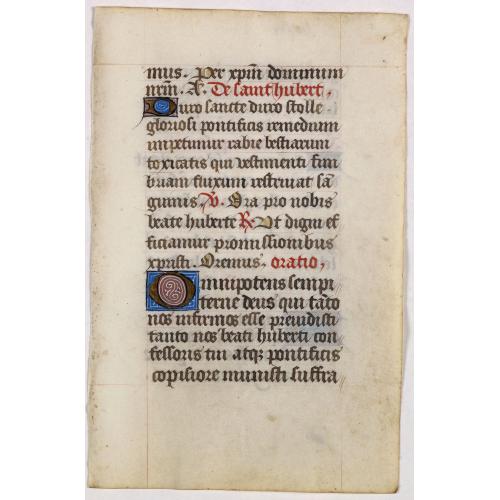 mus. Per xpm̄ dominum
nrm̄. A. De saint hubert,
Duro sancte duro stolle
gloriosi pontificis remedium
impetimur rabie bestiarum
toxicatis qui vestimenti fim
briam fluxum restruat sā
guinis. V. Ora pro nobis
beate huberte R. Ut digni ef
ficiamur promissionibus
xpristi. Oremus. oratio,
Omnipotens sempi
terne deus qui tāto
nos infirmos esse previdisti
tanto nos beati huberti con
fessoris tui atqz pontificis
copisiore munisti suffra